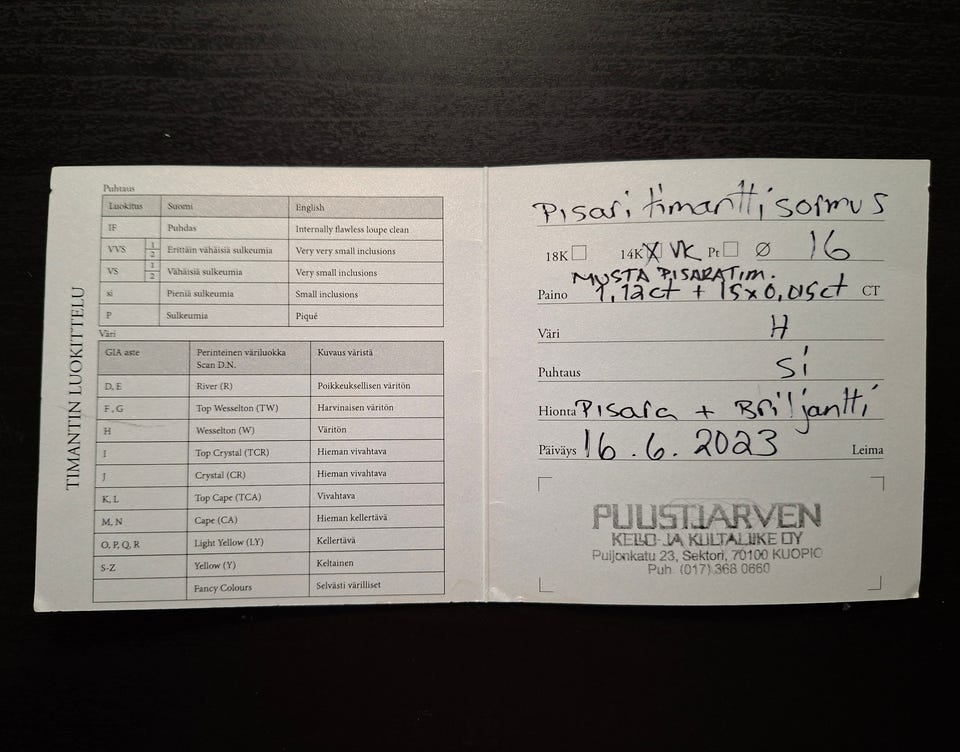 TIMANTIN LUOKITTELU
Puhtaus
Luokitus Suomi English
IF Puhdas Internally flawless loupe clean
VVS 1 2 Erittäin vähäisiä sulkeumia Very very small inclusions
VS 1 2 Vähäisiä sulkeumia Very small inclusions
si Pieniä sulkeumia Small inclusions
P Sulkeumia Piqué
Väri
GIA aste Perinteinen väriluokka Kuvaus väristä
Scan D.N.
D, E River (R) Poikkeuksellisen väritön
F, G Top Wesselton (TW) Harvinaisen väritön
H Wesselton (W) Väritön
I Top Crystal (TCR) Hieman vivahtava
J Crystal (CR) Hieman vivahtava
K, L Top Cape (TCA) Vivahtava
M, N Cape (CA) Hieman kellertävä
O, P, Q, R Light Yellow (LY) Kellertävä
S-Z Yellow (Y) Keltainen
Fancy Colours Selvästi värilliset
Pisari timanttisormus
18K 14K X VK Pt Ø 16
MUSTA PISARATIM.
Paino 1,12ct + 15x0,015ct CT
Väri H
Puhtaus Si
Hionta Pisara + Briljantti
Päiväys 16.6.2023 Leima
PUUSTJARVEN
KELLO- JA KULTALIIKE OY
Puijonkatu 23, Sektori, 70100 KUOPIO
Puh. (017) 368 0660